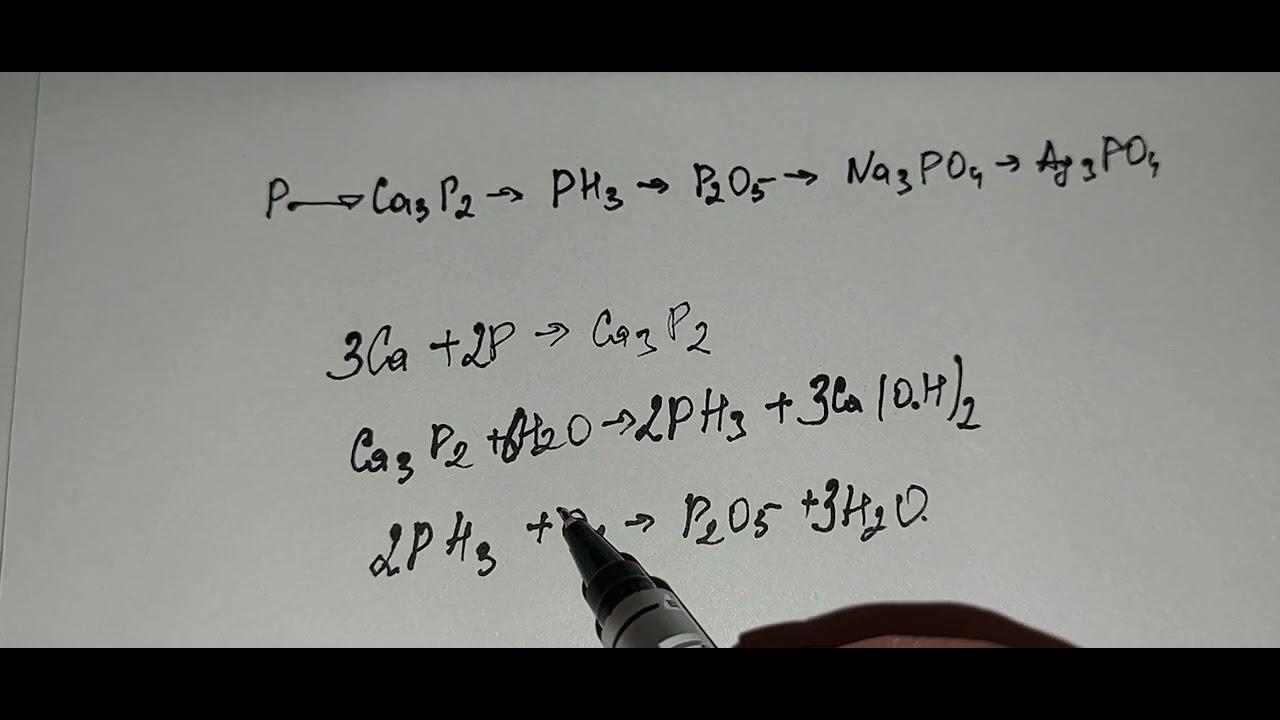 P → Ca₃P₂ → PH₃ → P₂O₅ → Na₃PO₄ → Ag₃PO₄
3Ca + 2P → Ca₃P₂
Ca₃P₂ + 6H₂O → 2PH₃ + 3Ca(OH)₂
2PH₃ + → P₂O₅ + 3H₂O.